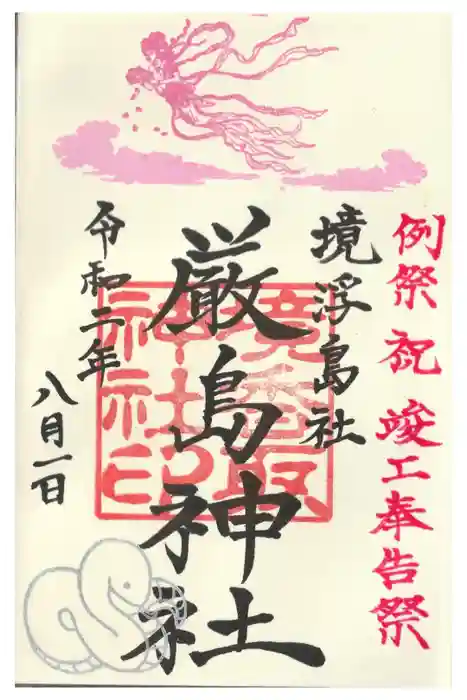 例祭 祝 竣工奉告祭
境浮島社
厳島神社
令和二年
八月一日
境香取
神社印